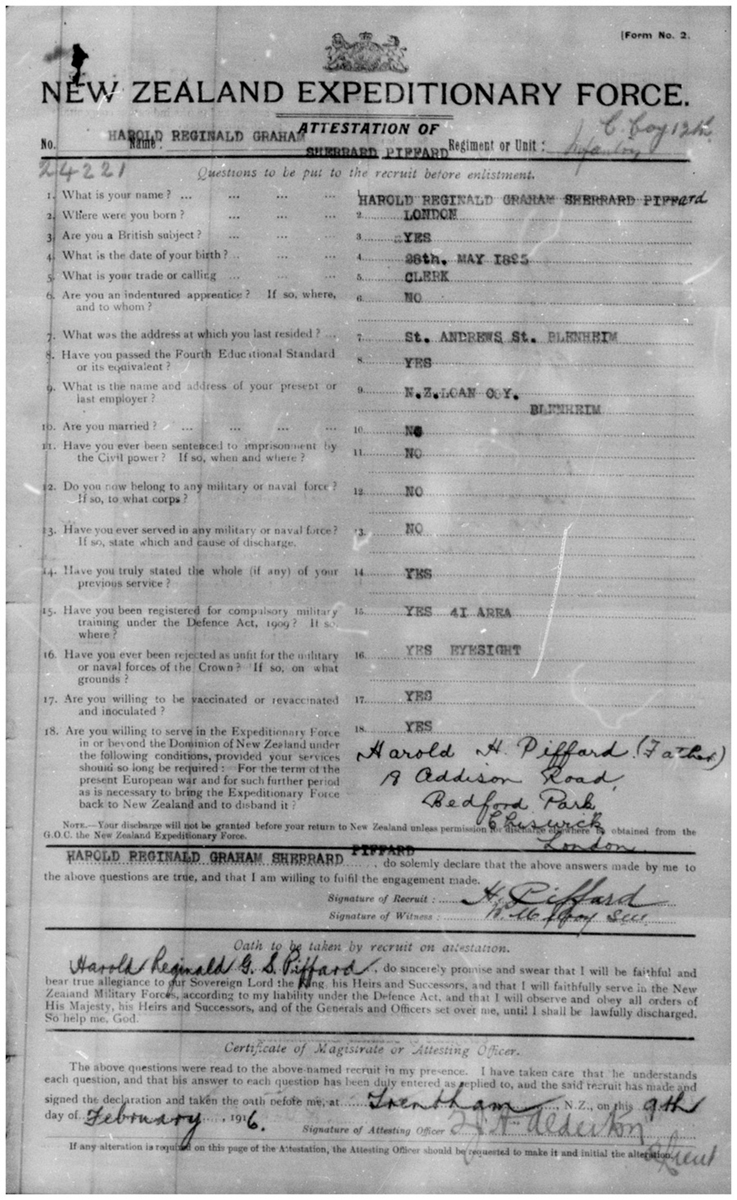 [Form No. 2.
NEW ZEALAND EXPEDITIONARY FORCE.
ATTESTATION OF
No. Name: HAROLD REGINALD GRAHAM SHERRARD PIFFARD Regiment or Unit: C. Coy 12th
24221 Infantry
Questions to be put to the recruit before enlistment.
1. What is your name? ... ... ... ... HAROLD REGINALD GRAHAM SHERRARD PIFFard
2. Where were you born? ... ... ... 2. LONDON
3. Are you a British subject? ... ... 3. YES
4. What is the date of your birth? .. ... 4. 28th. MAY 1895
5. What is your trade or calling ... ... 5. CLERK
6. Are you an indentured apprentice? If so, where, 6. NO
and to whom?
7. What was the address at which you last resided? ... 7. St. ANDREWS St. BLENHEIM
8. Have you passed the Fourth Educational Standard 8. YES
or its equivalent?
9. What is the name and address of your present or 9. N.Z.LOAN COY.
last employer? BLENHEIM
10. Are you married? ... ... ... ... 10. NO
11. Have you ever been sentenced to imprisonment by 11. NO
the Civil power? If so, when and where?
12. Do you now belong to any military or naval force? 12. NO
If so, to what corps?
13. Have you ever served in any military or naval force? 13. NO
If so, state which and cause of discharge.
14. Have you truly stated the whole (if any) of your 14. YES
previous service?
15. Have you been registered for compulsory military 15. YES 41 AREA
training under the Defence Act, 1909? If so,
where?
16. Have you ever been rejected as unfit for the military 16. YES EYESIGHT
or naval forces of the Crown? If so, on what
grounds?
17. Are you willing to be vaccinated or revaccinated 17. YES
and inoculated?
18. Are you willing to serve in the Expeditionary Force 18. YES
in or beyond the Dominion of New Zealand under
the following conditions, provided your services
should so long be required: For the term of the
present European war and for such further period
as is necessary to bring the Expeditionary Force
back to New Zealand and to disband it?
Harold H. Piffard (Father)
18 Addison Road,
Bedford Park
Chiswick
London.
NOTE.—Your discharge will not be granted before your return to New Zealand unless permission for discharge elsewhere is obtained from the
G.O.C. the New Zealand Expeditionary Force.
HAROLD REGINALD GRAHAM SHERRARD PIFFARD, do solemnly declare that the above answers made by me to
the above questions are true, and that I am willing to fulfil the engagement made.
Signature of Recruit: H. Piffard
Signature of Witness:
Oath to be taken by recruit on attestation.
Harold Reginald G. S. Piffard, do sincerely promise and swear that I will be faithful and
bear true allegiance to our Sovereign Lord the King, his Heirs and Successors, and that I will faithfully serve in the New
Zealand Military Forces, according to my liability under the Defence Act, and that I will observe and obey all orders of
His Majesty, his Heirs and Successors, and of the Generals and Officers set over me, until I shall be lawfully discharged.
So help me, God.
Certificate of Magistrate or Attesting Officer.
The above questions were read to the above-named recruit in my presence. I have taken care that he understands
each question, and that his answer to each question has been duly entered as replied to, and the said recruit has made and
signed the declaration and taken the oath before me, at Trentham, N.Z., on this 9th
day of February, 1916.
Signature of Attesting Officer Alderton
Lieut
If any alteration is required on this page of the Attestation, the Attesting Officer should be requested to make it and initial the alteration.